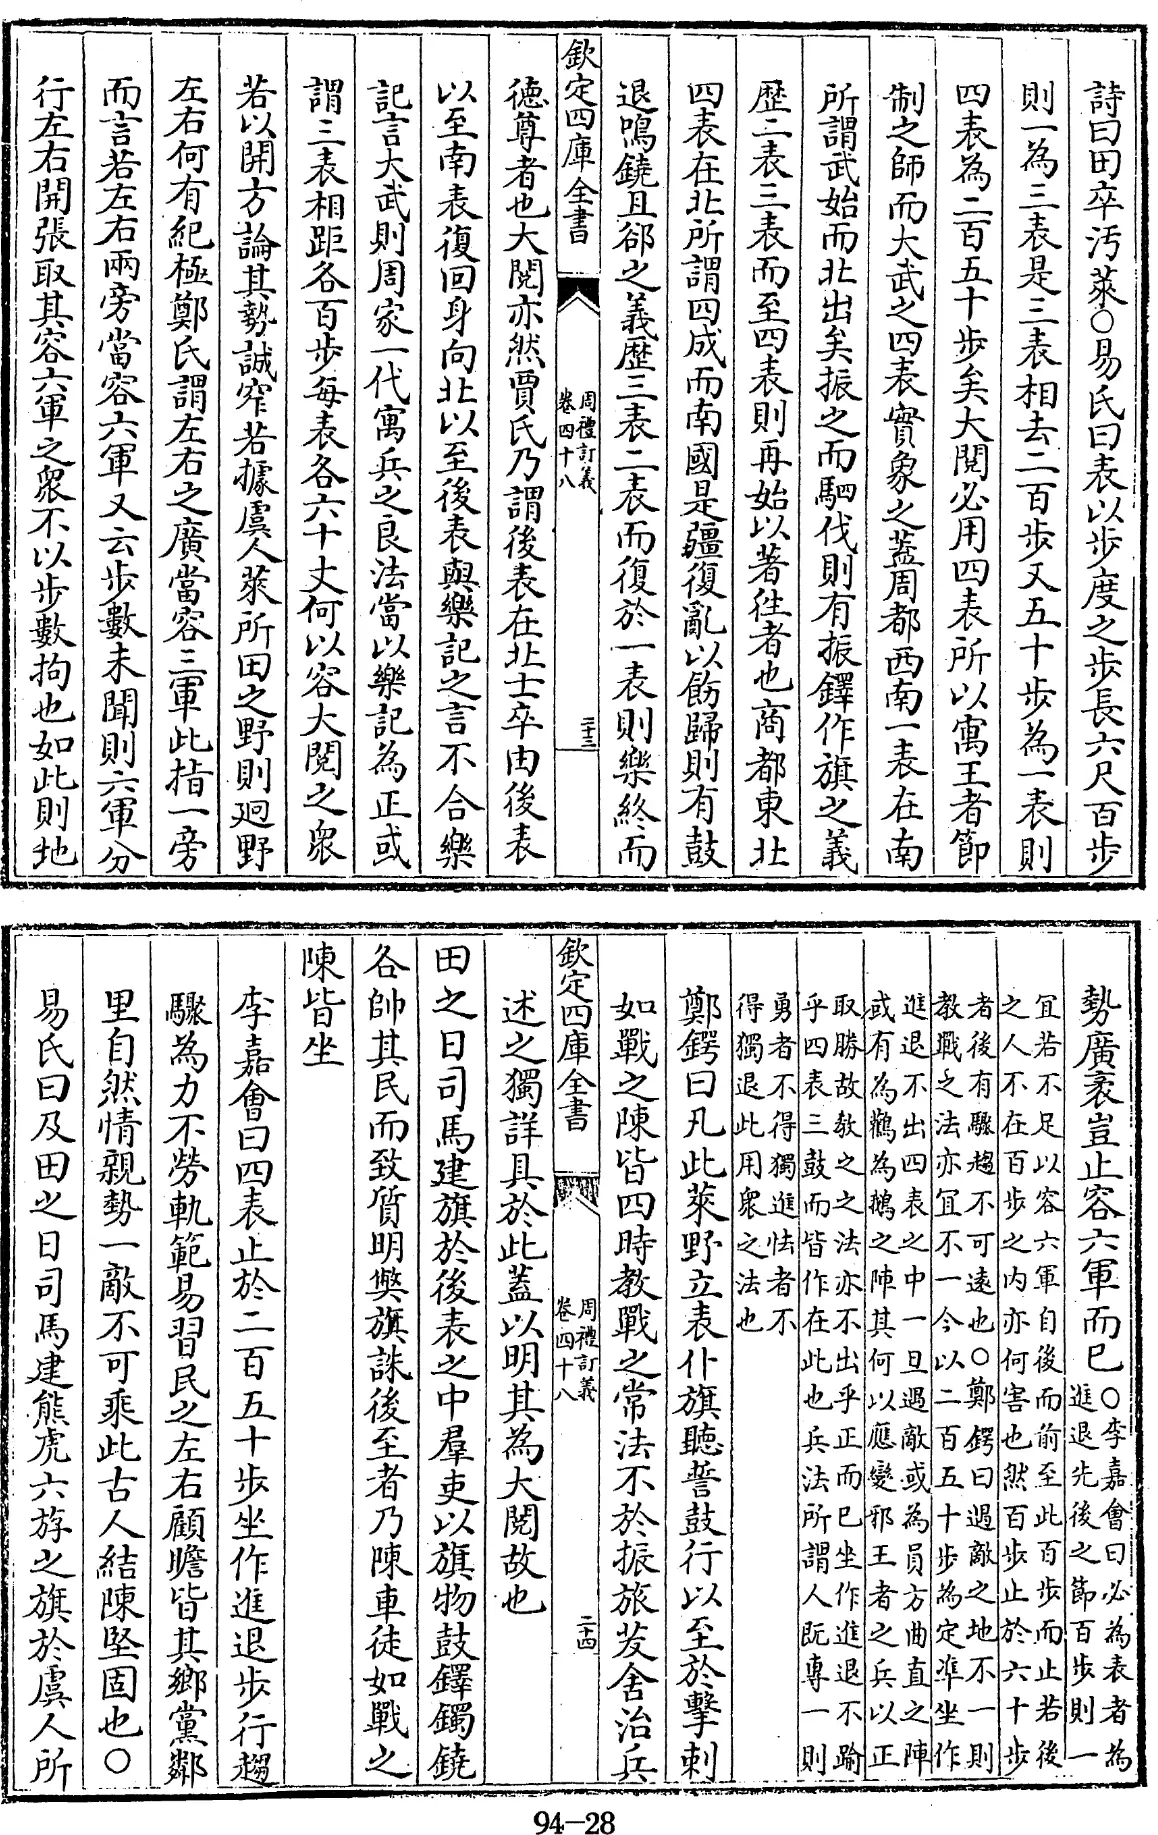 詩曰田卒汚萊○易氏曰表以步度之步長六尺百步
則一為三表是三表相去二百步又五十步為一表則
四表為二百五十步矣大閱必用四表所以寓王者節
制之師而大武之四表實象之蓋周都西南一表在南
所謂武始而北出矣振之而駟伐則有振鐸作旗之義
歴二表三表而至四表則再始以著徃者也商都東北
四表在北所謂四成而南國是疆復亂以飭歸則有鼓
退鳴鐃且郤之義歴三表二表而復於一表則樂終而
欽定四庫全書
周禮訂義
卷四十八
二十三
徳尊者也大閱亦然賈氏乃謂後表在北士卒由後表
以至南表復回身向北以至後表與樂記之言不合樂
記言大武則周家一代寓兵之良法當以樂記為正或
謂三表相距各百步每表各六十丈何以容大閱之衆
若以開方論其勢誠窄若據虞人萊所田之野則廻野
左右何有紀極鄭氏謂左右之廣當容三軍此指一旁
而言若左右兩旁當容六軍又云步數未聞則六軍分
行左右開張取其容六軍之衆不以步數拘也如此則地
勢廣袤豈止容六軍而已
○李嘉會曰必為表者為
進退先後之節百步則一
宜若不足以容六軍自後而前至此百步而止若後
之人不在百步之内亦何害也然百步止於六十步
者後有驟趨不可遠也○鄭鍔曰遇敵之地不一則
教戰之法亦宜不一今以二百五十步為定凖坐作
進退不出四表之中一旦遇敵或為員方曲直之陣
或有為鸛為鵝之陣其何以應變邪王者之兵以正
取勝故教之之法亦不出乎正而已坐作進退不踰
乎四表三鼓而皆作在此也兵法所謂人既專一則
勇者不得獨進怯者不
得獨退此用衆之法也
鄭鍔曰凡此萊野立表仆旗聽誓鼓行以至於擊刺
如戰之陳皆四時教戰之常法不於振旅茇舍治兵
欽定四庫全書
周禮訂義
卷四十八
二十四
述之獨詳具於此蓋以明其為大閱故也
田之日司馬建旗於後表之中羣吏以旗物鼓鐸鐲鐃
各帥其民而致質明獘旗誅後至者乃陳車徒如戰之
陳皆坐
李嘉會曰四表止於二百五十步坐作進退步行趨
驟為力不勞軌範易習民之左右顧瞻皆其鄉黨鄰
里自然情親勢一敵不可乘此古人結陳堅固也○
易氏曰及田之日司馬建熊虎六斿之旗於虞人所
94-28